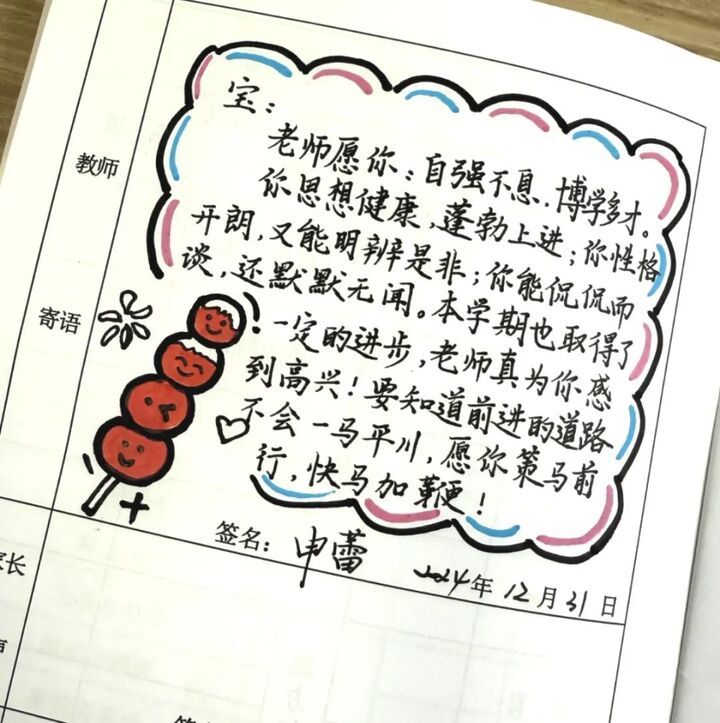 宝：
老师愿你：自强不息、博学多才。
你思想健康，蓬勃上进；你性格
开朗，又能明辨是非；你能侃侃而
谈，还默默无闻。本学期也取得了
一定的进步，老师真为你感
到高兴！要知道前进的道路
不会一马平川，愿你策马前
行，快马加鞭！
教师
寄语
签名：申蕾
2024年12月31日
家长